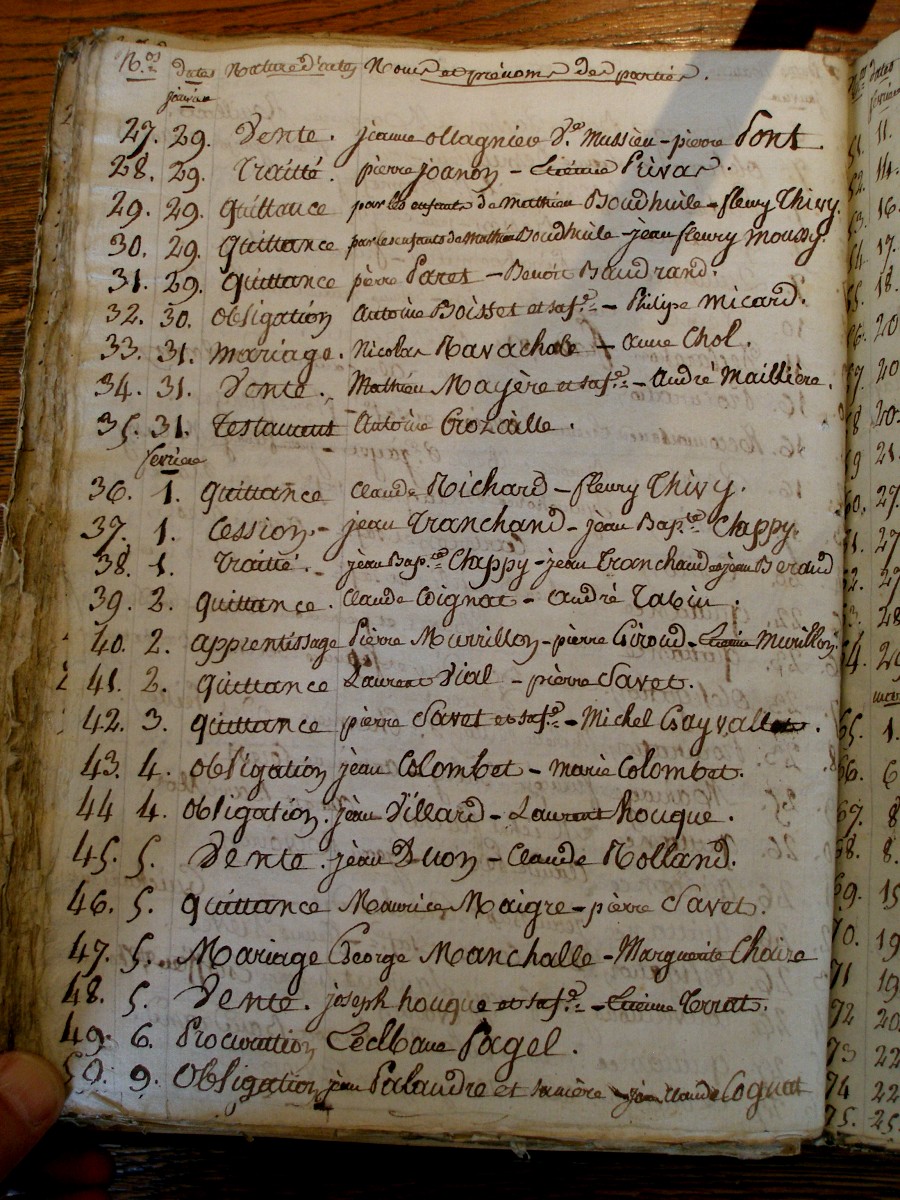 N.os dates Nature d'actes Noms et prénoms des parties.
janvier
27. 29. Vente. jeanne ollagnier v.e Mussieu - pierre Pont.
28. 29. Traitté. pierre joanon - Etienne Privas.
29. 29. quittance par les enfants de mathieu Boudhuile - fleury Thivy.
30. 29. quittance par les enfants de Mathieu Boudhuile - jean fleury moussy.
31. 29. quittance pièrre Paret - Benoit Baudrand.
32. 30. obligation Antoine Boisset et sa f.e - Philipe Micard.
33. 31. mariage. Nicolas Ravachole - anne Chol.
34. 31. Vente. Mathieu Mayère et sa f.e - andré Maillière.
35. 31. Testament Antoine Crozaille.
fevrier
36. 1. quittance Claude Richard - fleury Thivy.
37. 1. Cession - jean Tranchand - jean Bap.te Chappy.
38. 1. Traitté. jean Bap.te Chappy - jean Tranchand et jean Beraud
39. 2. quittance. Claude Coignat - andré Tabiu.
40. 2. apprentissage Pierre Murrillon - pierre Giroud - Etienne Murillon.
41. 2. quittance Laurent Vial - pièrre Savet.
42. 3. quittance pierre Savet et sa f.e - Michel Gayvallet.
43. 4. obligation jean Colombet - marie Colombet.
44 4. obligation. jean Villard - Laurent houque.
45. 5. Vente. jean Duon - Claude Rolland.
46. 5. quittance Maurice Maigre - pièrre Savet.
47. 5. Mariage George Manchalle - Marguerite Choize
48. 5. Vente. joseph houque et sa f.e - Etienne Terrat.
49. 6. Procuration Pagel.
50. 9. Obligation jean Palandre et - jean Claude Cognat